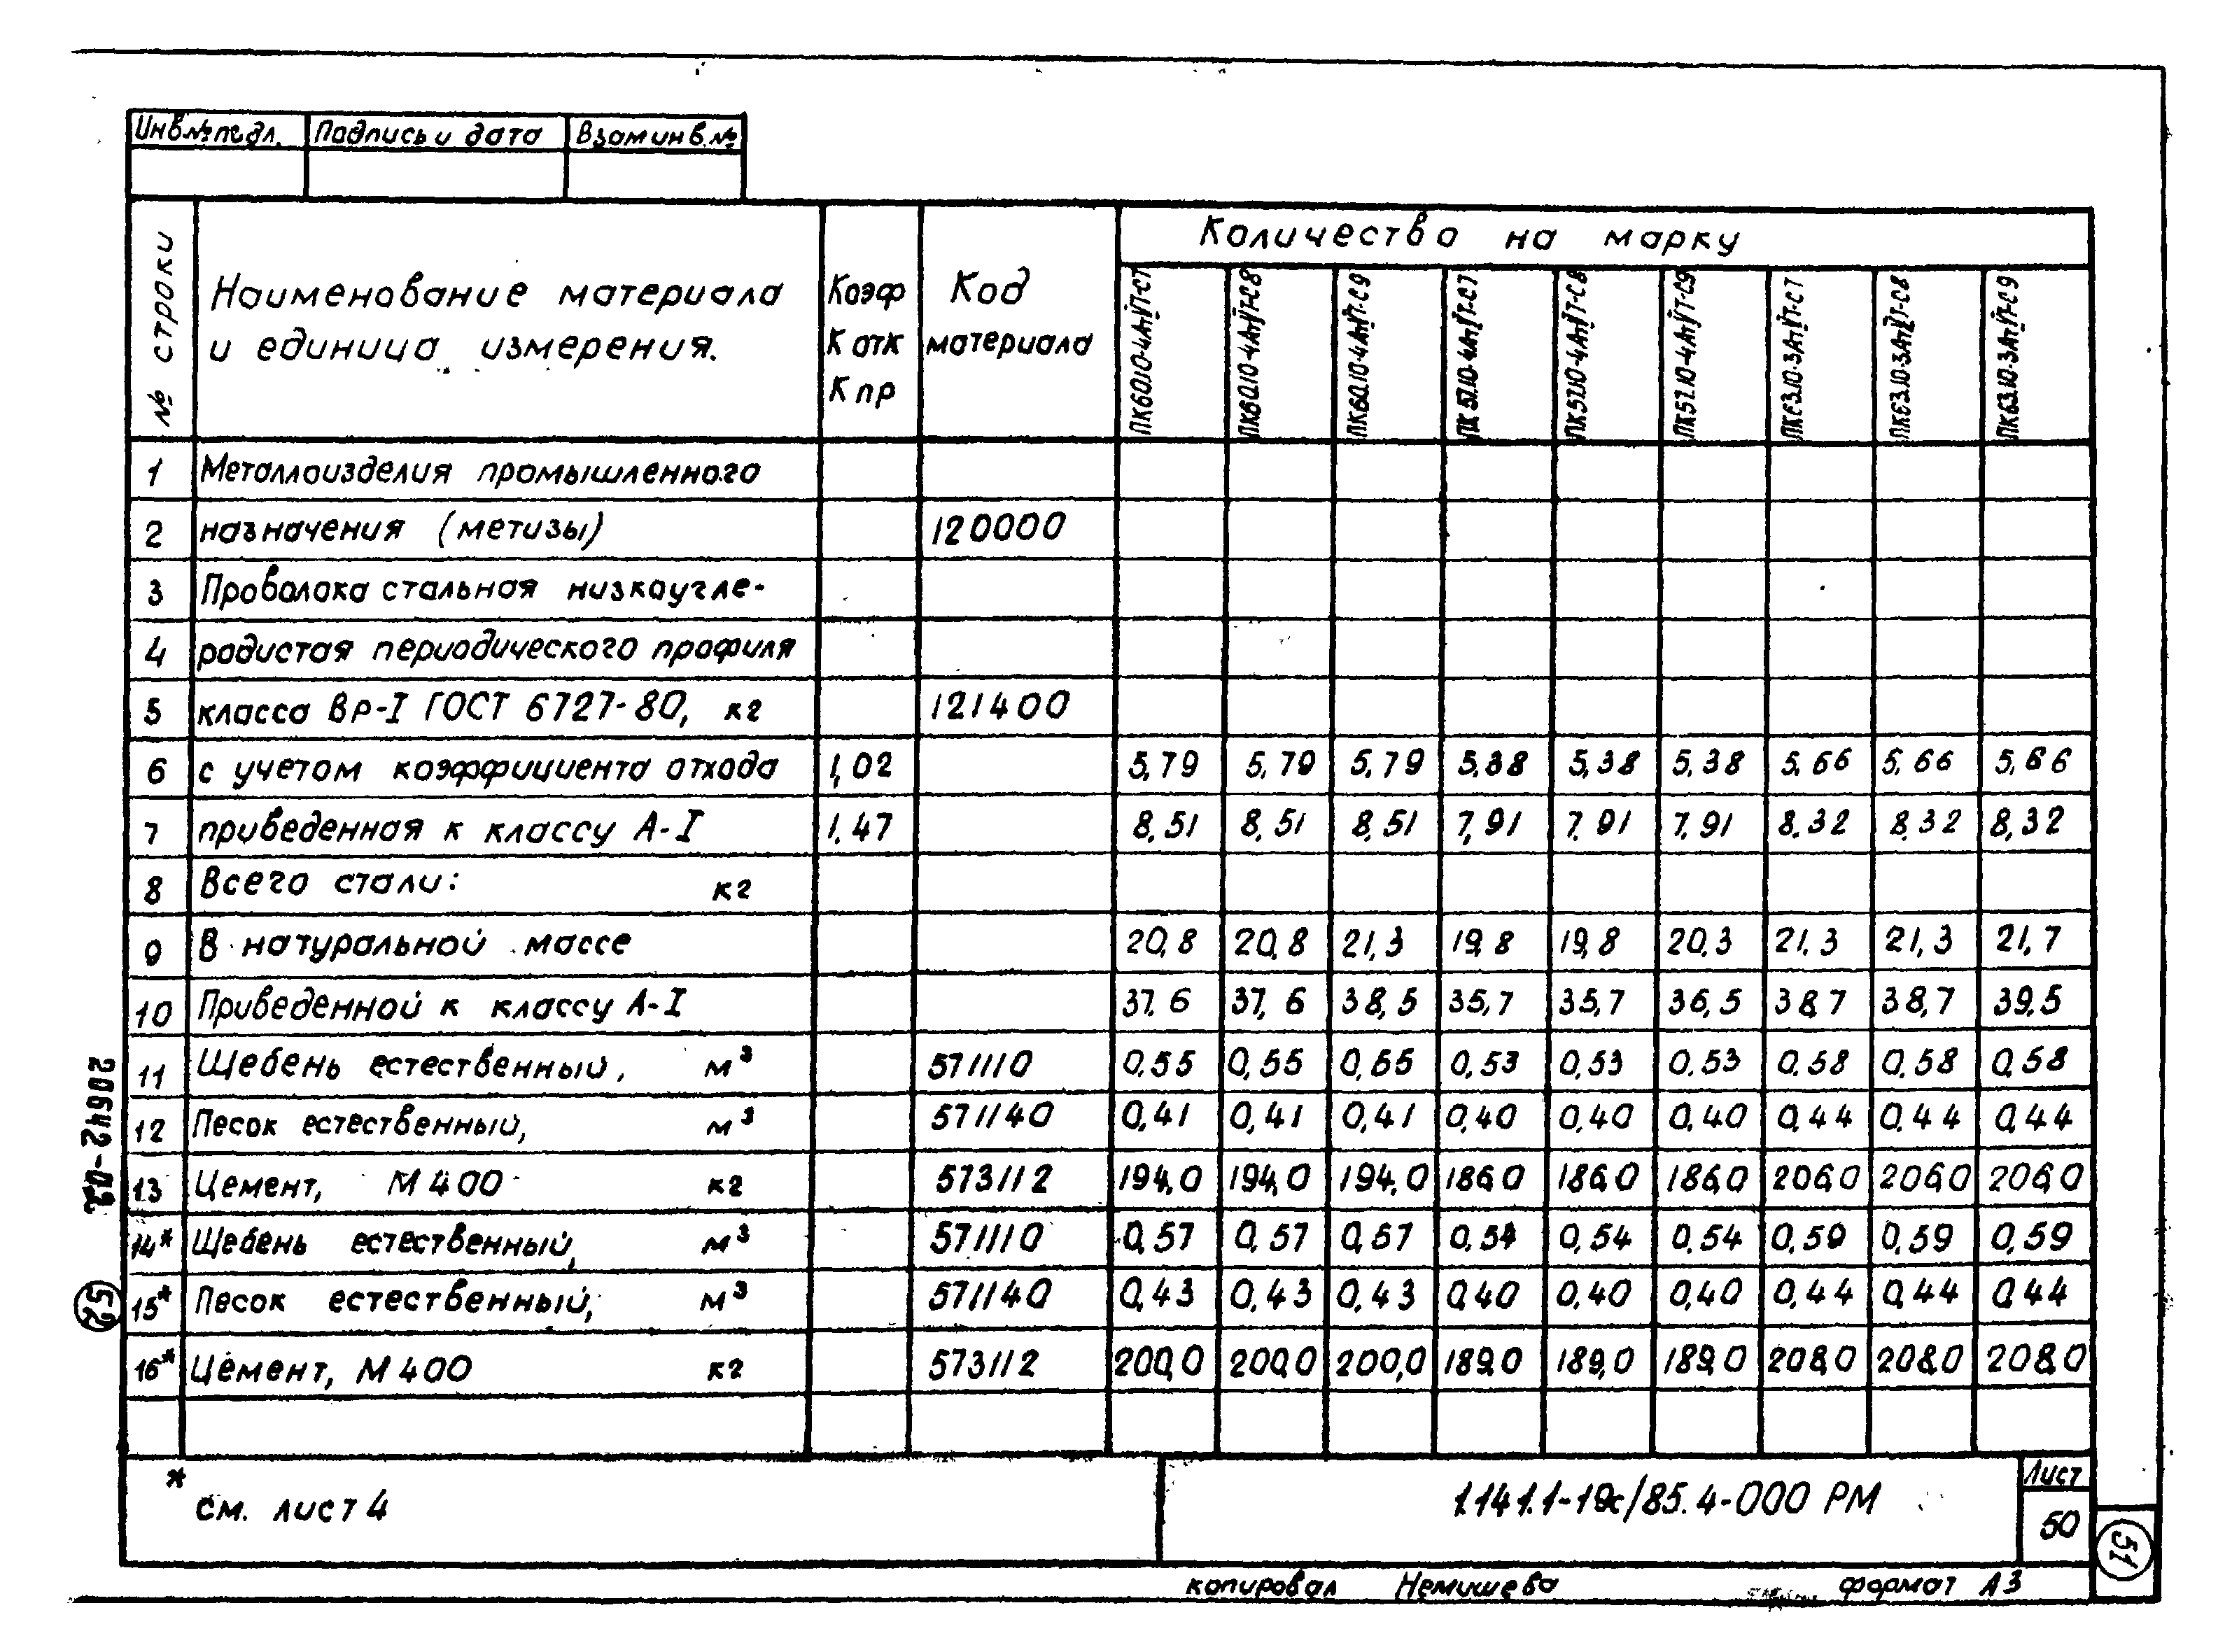 Инв.№ подл. Подпись и дата Взам инв.№
№ строки
Наименование материала
и единица измерения.
Коэф
К отк
К пр
Код
материала
Количество на марку
ПК60.10-4АтVТ-С7 ПК60.10-4АтVТ-С8 ПК60.10-4АтVТ-С9 ПК57.10-4АтVТ-С7 ПК57.10-4АтVТ-С8 ПК57.10-4АтVТ-С9 ПК63.10-3АтVТ-С7 ПК63.10-3АтVТ-С8 ПК63.10-3АтVТ-С9
1 Металлоизделия промышленного
2 назначения (метизы) 120000
3 Проволока стальная низкоугле-
4 родистая периодического профиля
5 класса Вр-I ГОСТ 6727-80, кг 121400
6 с учетом коэффициента отхода 1,02 5,79 5,79 5,79 5,38 5,38 5,38 5,66 5,66 5,66
7 приведенная к классу А-I 1,47 8,51 8,51 8,51 7,91 7,91 7,91 8,32 8,32 8,32
8 Всего стали: кг
9 В натуральной массе 20,8 20,8 21,3 19,8 19,8 20,3 21,3 21,3 21,7
10 Приведенной к классу А-I 37,6 37,6 38,5 35,7 35,7 36,5 38,7 38,7 39,5
11 Щебень естественный, м³ 571110 0,55 0,55 0,55 0,53 0,53 0,53 0,58 0,58 0,58
12 Песок естественный, м³ 571140 0,41 0,41 0,41 0,40 0,40 0,40 0,44 0,44 0,44
13 Цемент, М400 кг 573112 194,0 194,0 194,0 186,0 186,0 186,0 206,0 206,0 206,0
14* Щебень естественный, м³ 571110 0,57 0,57 0,57 0,54 0,54 0,54 0,59 0,59 0,59
15* Песок естественный, м³ 571140 0,43 0,43 0,43 0,40 0,40 0,40 0,44 0,44 0,44
16* Цемент, М400 кг 573112 200,0 200,0 200,0 189,0 189,0 189,0 208,0 208,0 208,0
20642-02
52
* см. лист 4
1.141.1-19с/85.4-000 РМ
Лист
50
51
копировал Немишева формат А3